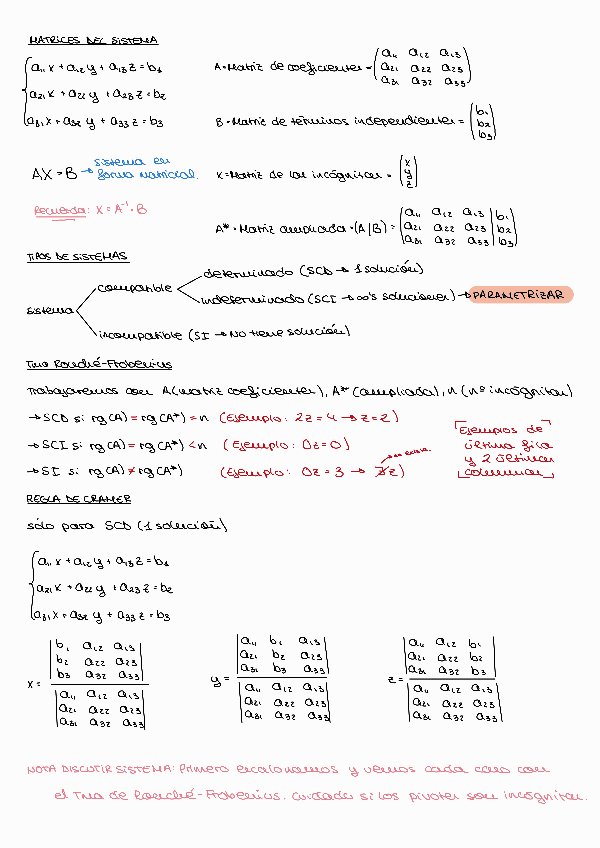 MATRICES DEL SISTEMA
a₁₁x + a₁₂y + a₁₃z = b₁
a₂₁x + a₂₂y + a₂₃z = b₂
a₃₁x + a₃₂y + a₃₃z = b₃
A = Matriz de coeficientes = (a₁₁ a₁₂ a₁₃
a₂₁ a₂₂ a₂₃
a₃₁ a₃₂ a₃₃)
B = Matriz de términos independientes = (b₁
b₂
b₃)
AX = B → sistema en
forma matricial.
X = Matriz de las incógnitas = (x
y
z)
Recuerda: X = A⁻¹ · B
A* = Matriz ampliada = (A|B) = (a₁₁ a₁₂ a₁₃ | b₁
a₂₁ a₂₂ a₂₃ | b₂
a₃₁ a₃₂ a₃₃ | b₃)
TIPOS DE SISTEMAS
sistema
compatible
determinado (SCD → 1 solución)
indeterminado (SCI → ∞'s soluciones) → PARAMETRIZAR
incompatible (SI → No tiene solución)
Tma Rouché-Frobenius
Trabajaremos con A (matriz coeficientes), A* (ampliada), n (nº incógnitas)
→ SCD si rg(A) = rg(A*) = n (Ejemplo: 2z = 4 → z = 2)
→ SCI si rg(A) = rg(A*) < n (Ejemplo: 0z = 0)
→ SI si rg(A) ≠ rg(A*) (Ejemplo: 0z = 3 → ∄z)
no existe
Ejemplos de
última fila
y 2 últimas
columnas
REGLA DE CRAMER
sólo para SCD (1 solución)
a₁₁x + a₁₂y + a₁₃z = b₁
a₂₁x + a₂₂y + a₂₃z = b₂
a₃₁x + a₃₂y + a₃₃z = b₃
x = |b₁ a₁₂ a₁₃
b₂ a₂₂ a₂₃
b₃ a₃₂ a₃₃|
|a₁₁ a₁₂ a₁₃
a₂₁ a₂₂ a₂₃
a₃₁ a₃₂ a₃₃|
y = |a₁₁ b₁ a₁₃
a₂₁ b₂ a₂₃
a₃₁ b₃ a₃₃|
|a₁₁ a₁₂ a₁₃
a₂₁ a₂₂ a₂₃
a₃₁ a₃₂ a₃₃|
z = |a₁₁ a₁₂ b₁
a₂₁ a₂₂ b₂
a₃₁ a₃₂ b₃|
|a₁₁ a₁₂ a₁₃
a₂₁ a₂₂ a₂₃
a₃₁ a₃₂ a₃₃|
NOTA DISCUTIR SISTEMA: Primero escalonamos y vemos cada caso con
el Tma de Rouché-Frobenius. Cuidado si los pivotes son incógnitas.